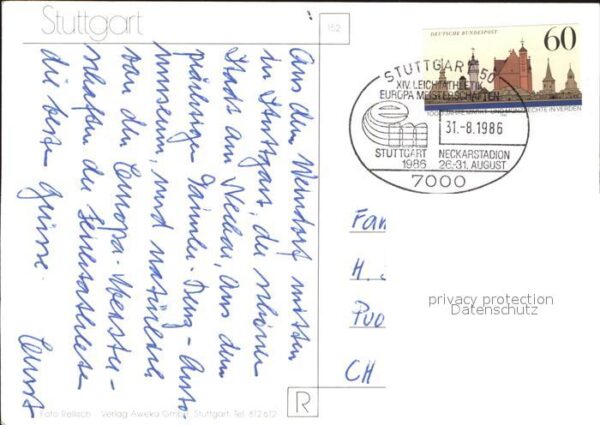 Stuttgart
152
Aus dem Weindorf mitten
in Stuttgart, der schönen
Stadt am Neckar, aus dem
prächtigen Daimler-Benz-Auto-
museum, und natürlich
von den Europa-Meister-
schaften der Leichtathleten
die besten Grüsse.
Ernst
DEUTSCHE BUNDESPOST
60
1000 JAHRE MARKT- UND MÜNZRECHTE IN VERDEN
STUTTGART 50
XIV. LEICHTATHLETIK
EUROPA MEISTERSCHAFTEN
31.-8.1986
STUTTGART NECKARSTADION
1986 26.-31. AUGUST
7000
Fam
H.
CH
privacy protection
Datenschutz
Foto Rellisch - Verlag Aweka GmbH, Stuttgart, Tel. 612612
R